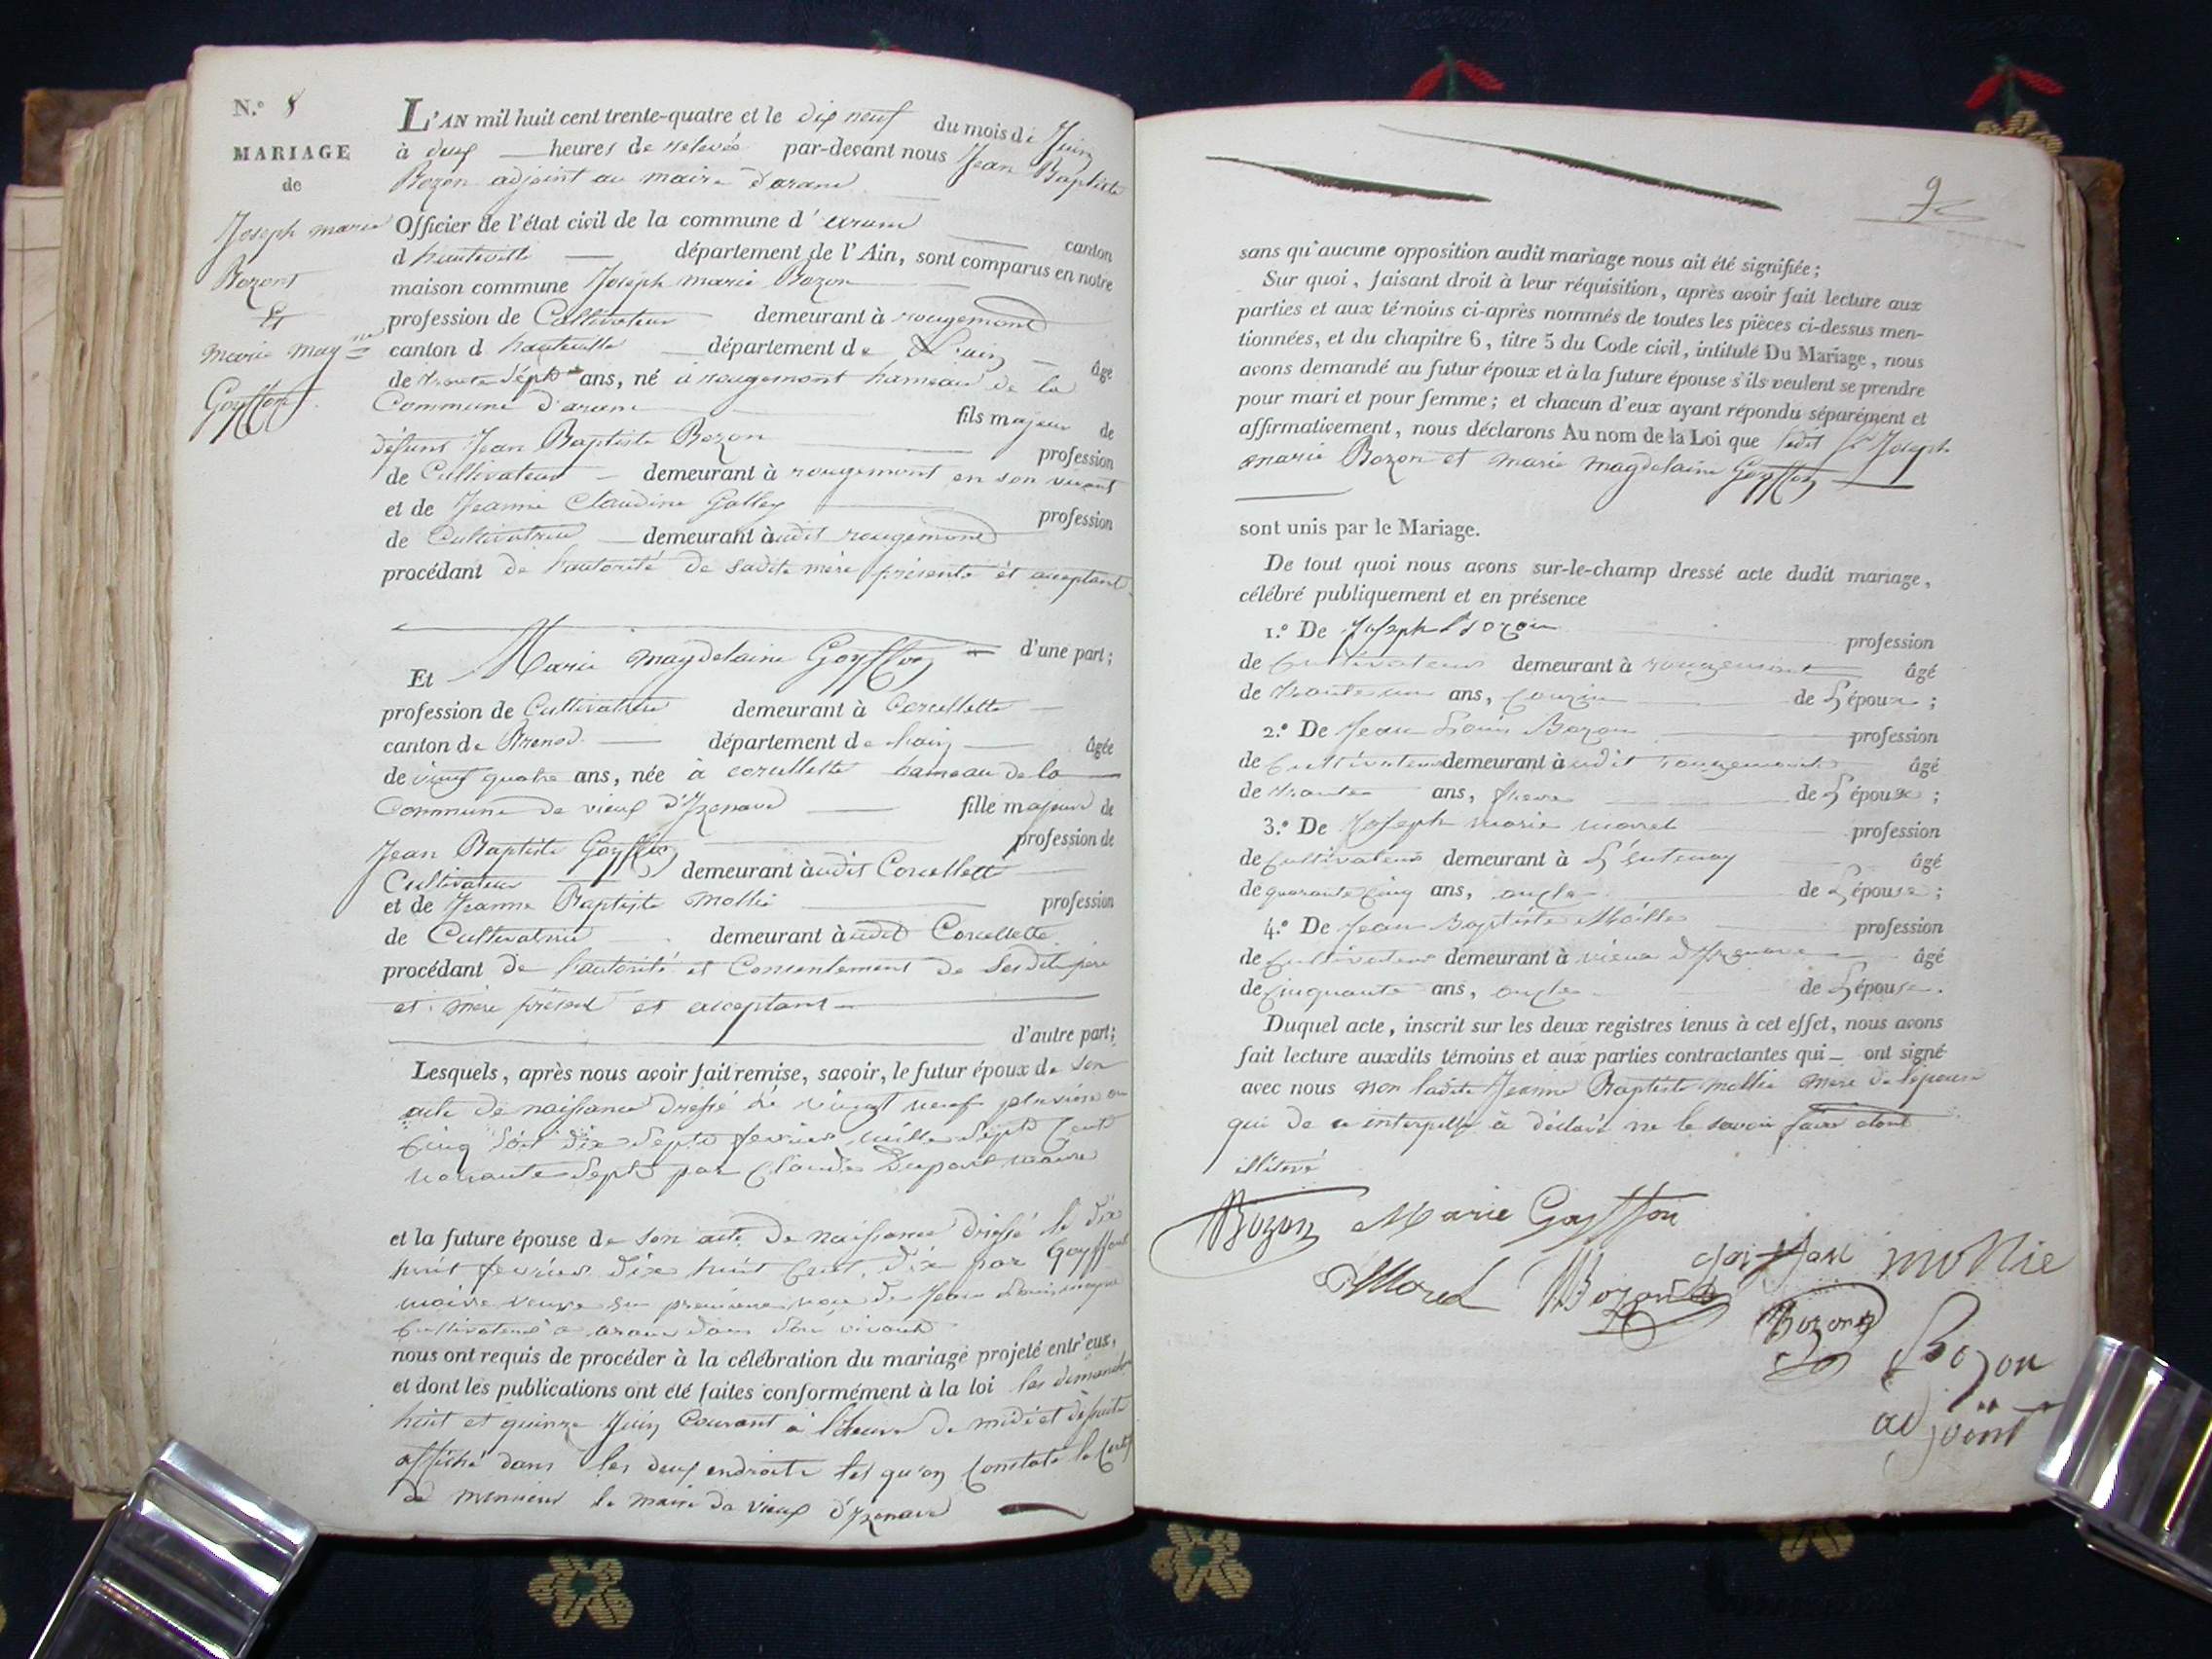 N.º 8
MARIAGE
de
Joseph marie
Bozont
Et
marie mag.ne
Goyffon
L'AN mil huit cent trente-quatre et le dix neuf du mois de Juin
à deux heures de relevée par-devant nous Jean Baptiste
Bozon adjoint au maire d'aranc
Officier de l'état civil de la commune d'aranc canton
d hauteville département de l'Ain, sont comparus en notre
maison commune Joseph marie Bozon
profession de Cultivateur demeurant à rougemont
canton d hauteville département de L'ain âgé
de trente sept ans, né à rougemont hameau de la
Commune d'aranc fils majeur de
défunt Jean Baptiste Bozon profession
de Cultivateur demeurant à rougemont en son vivant
et de Jeanne Claudine Galley profession
de Cultivatrice demeurant audit rougemont
procédant de l'autorité de sadite mère présente et acceptant
d'une part;
Et Marie magdelaine Goyffon
profession de Cultivatrice demeurant à Corcellette
canton de Brenod département de hain âgée
de vingt quatre ans, née à corcellette hameau de la
Commune de vieux d'Izenave fille majeure de
Jean Baptiste Goyffon profession de
Cultivateur demeurant audit Corcellette
et de Jeanne Baptiste Mollie profession
de Cultivatrice demeurant audit Corcellette
procédant de l'autorité et Consentement de Sesdits père
et mère présent et acceptant
d'autre part;
Lesquels, après nous avoir fait remise, savoir, le futur époux de son
acte de naissance dressé le vingt neuf pluviose an
Cinq soit dix sept fevrier mille Sept Cent
nonante Sept par Claude Dupont maire
et la future épouse de son acte de naissance dressé le dix
huit fevrier dix huit Cent dix par Goyffon
maire veuve en premiere de Jean Louis
Cultivateur a aranc dans son vivant
nous ont requis de procéder à la célébration du mariage projeté entr'eux,
et dont les publications ont été faites conformément à la loi les dimanche
huit et quinze Juin Courant à l'heure de midi et desuite
affiché dans les deux endroits tel qu'on Constate le Certif
de monsieur le maire de vieux d'Izenave
9
sans qu'aucune opposition audit mariage nous ait été signifiée;
Sur quoi, faisant droit à leur réquisition, après avoir fait lecture aux
parties et aux témoins ci-après nommés de toutes les pièces ci-dessus men-
tionnées, et du chapitre 6, titre 5 du Code civil, intitulé Du Mariage, nous
avons demandé au futur époux et à la future épouse s'ils veulent se prendre
pour mari et pour femme; et chacun d'eux ayant répondu séparément et
affirmativement, nous déclarons Au nom de la Loi que ledit Sr Joseph
marie Bozon et marie magdelaine Goyffon
sont unis par le Mariage.
De tout quoi nous avons sur-le-champ dressé acte dudit mariage,
célébré publiquement et en présence
1.º De Joseph Bozon profession
de Cultivateur demeurant à rougemont âgé
de trente un ans, Couzin de L'époux;
2.º De Jean Louis Bozon profession
de Cultivateur demeurant audit rougemont âgé
de trente ans, frere de L'époux;
3.º De Joseph marie morel profession
de Cultivateur demeurant à L'entenay âgé
de quarante Cinq ans, oncle de L'épouse;
4.º De Jean Baptiste Mollie profession
de Cultivateur demeurant à vieux d'Izenave âgé
de Cinquante ans, oncle de L'épouse.
Duquel acte, inscrit sur les deux registres tenus à cet effet, nous avons
fait lecture auxdits témoins et aux parties contractantes qui ont signé
avec nous non ladite Jeanne Baptiste mollie mère de lépouse
qui de ce interpellé à déclaré ne le savoir faire étant
illiteré
Bozon Marie Goyffon
Goiffon mollie
Morel Bozon
Bozon
Bozon
adjoint